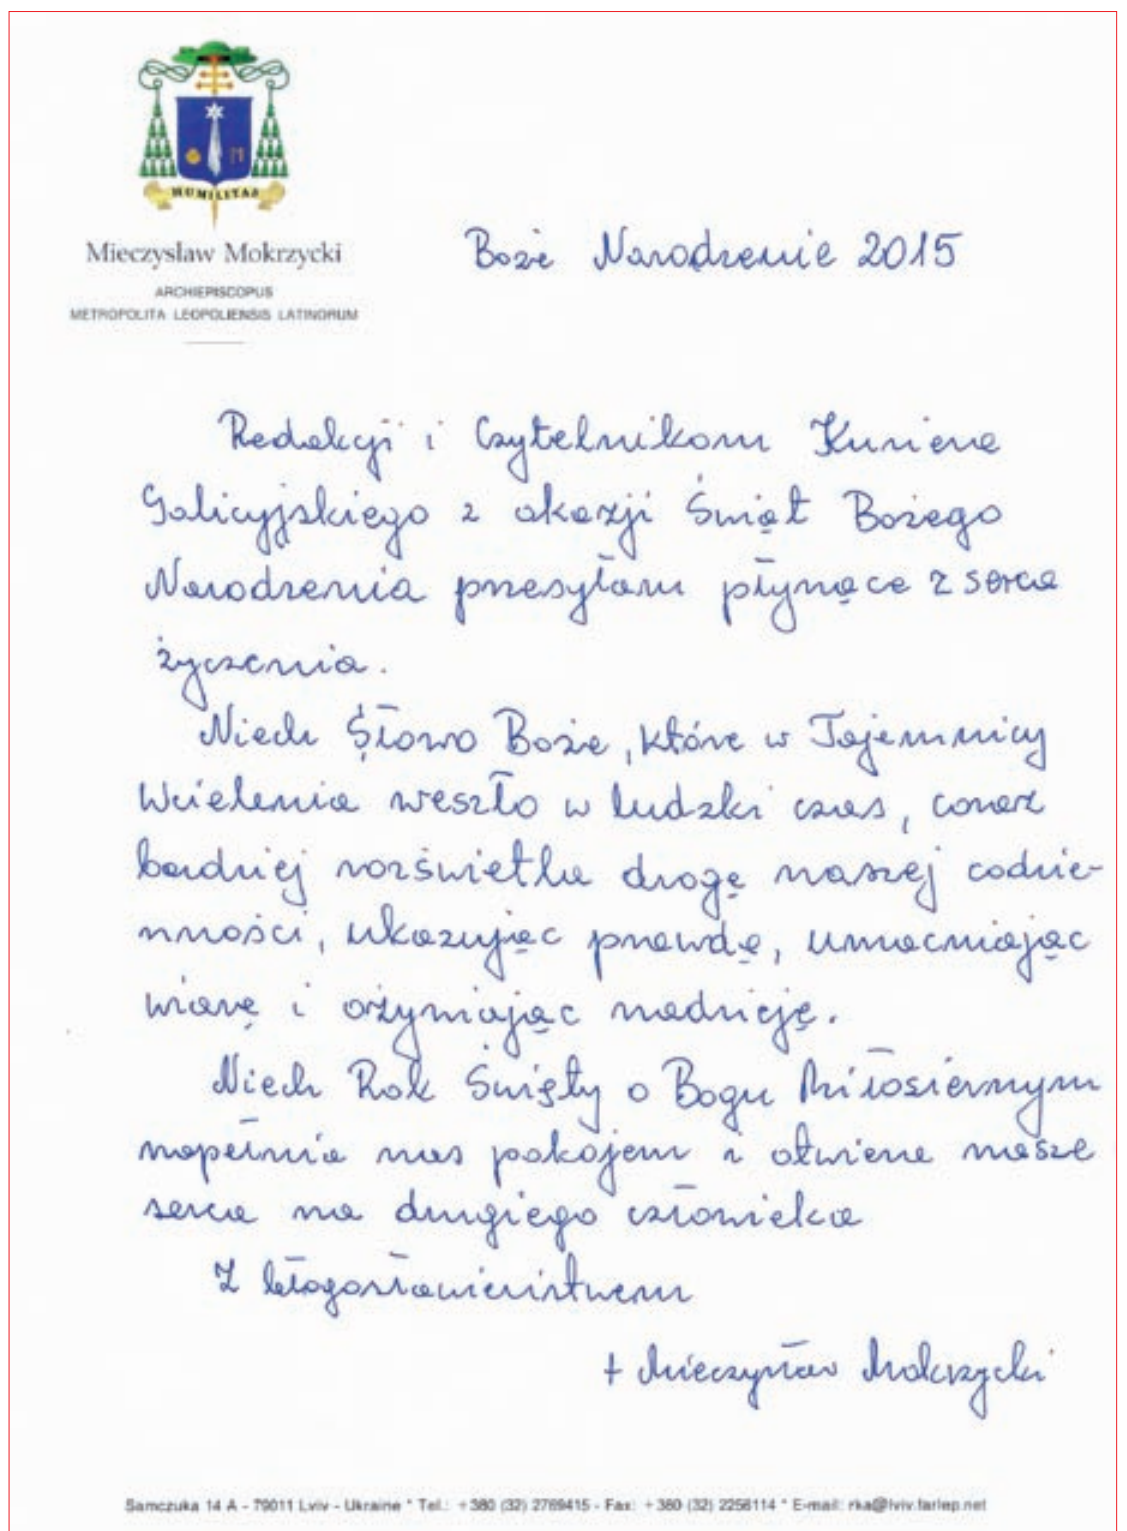 HUMILITAS
Mieczysław Mokrzycki
ARCHIEPISCOPUS
METROPOLITA LEOPOLIENSIS LATINORUM
Boże Narodzenie 2015
Redakcji i Czytelnikom Kuriera
Galicyjskiego z okazji Świąt Bożego
Narodzenia przesyłam płynące z serca
życzenia.
Niech Słowo Boże, które w Tajemnicy
Wcielenia weszło w ludzki czas, coraz
bardziej rozświetla drogę naszej codzie-
nności, ukazując prawdę, umacniając
wiarę i ożywiając nadzieję.
Niech Rok Święty o Bogu Miłosiernym
napełnia nas pokojem i otwiera nasze
serca na drugiego człowieka
Z błogosławieństwem
+ Mieczysław Mokrzycki
Samczuka 14 A - 79011 Lviv - Ukraine * Tel.: +380 (32) 2769415 - Fax: +380 (32) 2256114 * E-mail: rka@lviv.farlep.net